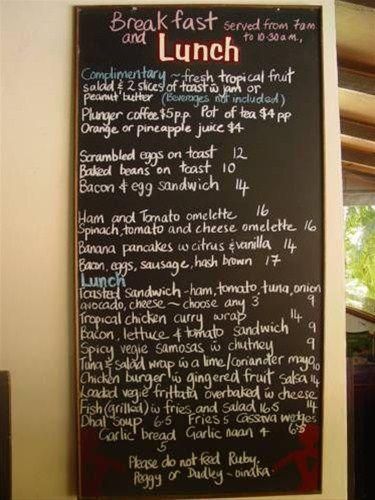 Breakfast served from 7am
and Lunch to 10.30am,
Complimentary ~ fresh tropical fruit
salad & 2 slices of toast w jam or
peanut butter (Beverages not included)
Plunger coffee $5pp Pot of tea $4pp
Orange or pineapple juice $4
Scrambled eggs on toast 12
Baked beans on toast 10
Bacon & egg sandwich 14
Ham and Tomato omelette 16
Spinach, tomato and cheese omelette 16
Banana pancakes w citrus & vanilla 14
Bacon, eggs, sausage, hash brown 17
Lunch
Toasted Sandwich - ham, tomato, tuna, onion
avocado, cheese ~ choose any 3 9
Tropical chicken curry wrap 14
Bacon, lettuce & tomato sandwich 9
Spicy vegie samosas w chutney 9
Tuna & salad wrap w a lime/coriander mayo 10
Chicken burger w gingered fruit salsa 14
Loaded vegie frittata overbaked w cheese
Fish (grilled) w fries and salad 16.5 14
Dhal Soup 6.5 Fries & Cassava wedges
Garlic bread Garlic naan 4 6.5
5
Please do not feed Ruby,
Peggy or Dudley - vinaka.